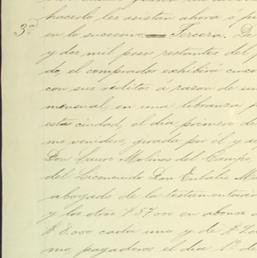 hacerlo, les asistan ahora o p
3ª en lo sucesivo — Tercera. De
y dos mil pesos restantes del
do, el comprador exhibirá cinco
con sus réditos a razon de un
mensual en una libranza
esta ciudad, el dia primero de
mo venidero, girada por él y
Don Luis Molinos del Campo,
del Licenciado Don Eulalio M
abogado de la testamentaría
y los otros $57.000 en abonos
$8.000 cada uno y de $
mo, pagaderos el dia 1º de